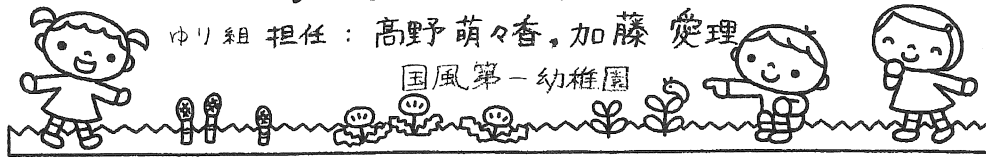 ゆり組 担任: 髙野 萌々香,加藤 愛理
国風第一幼稚園